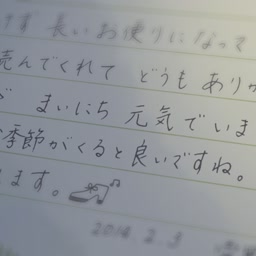 ます 長いお便りになって
読んでくれて どうも ありが
まいにち 元気でいま
季節がくると良いですね。
ます。
2014. 2. 3